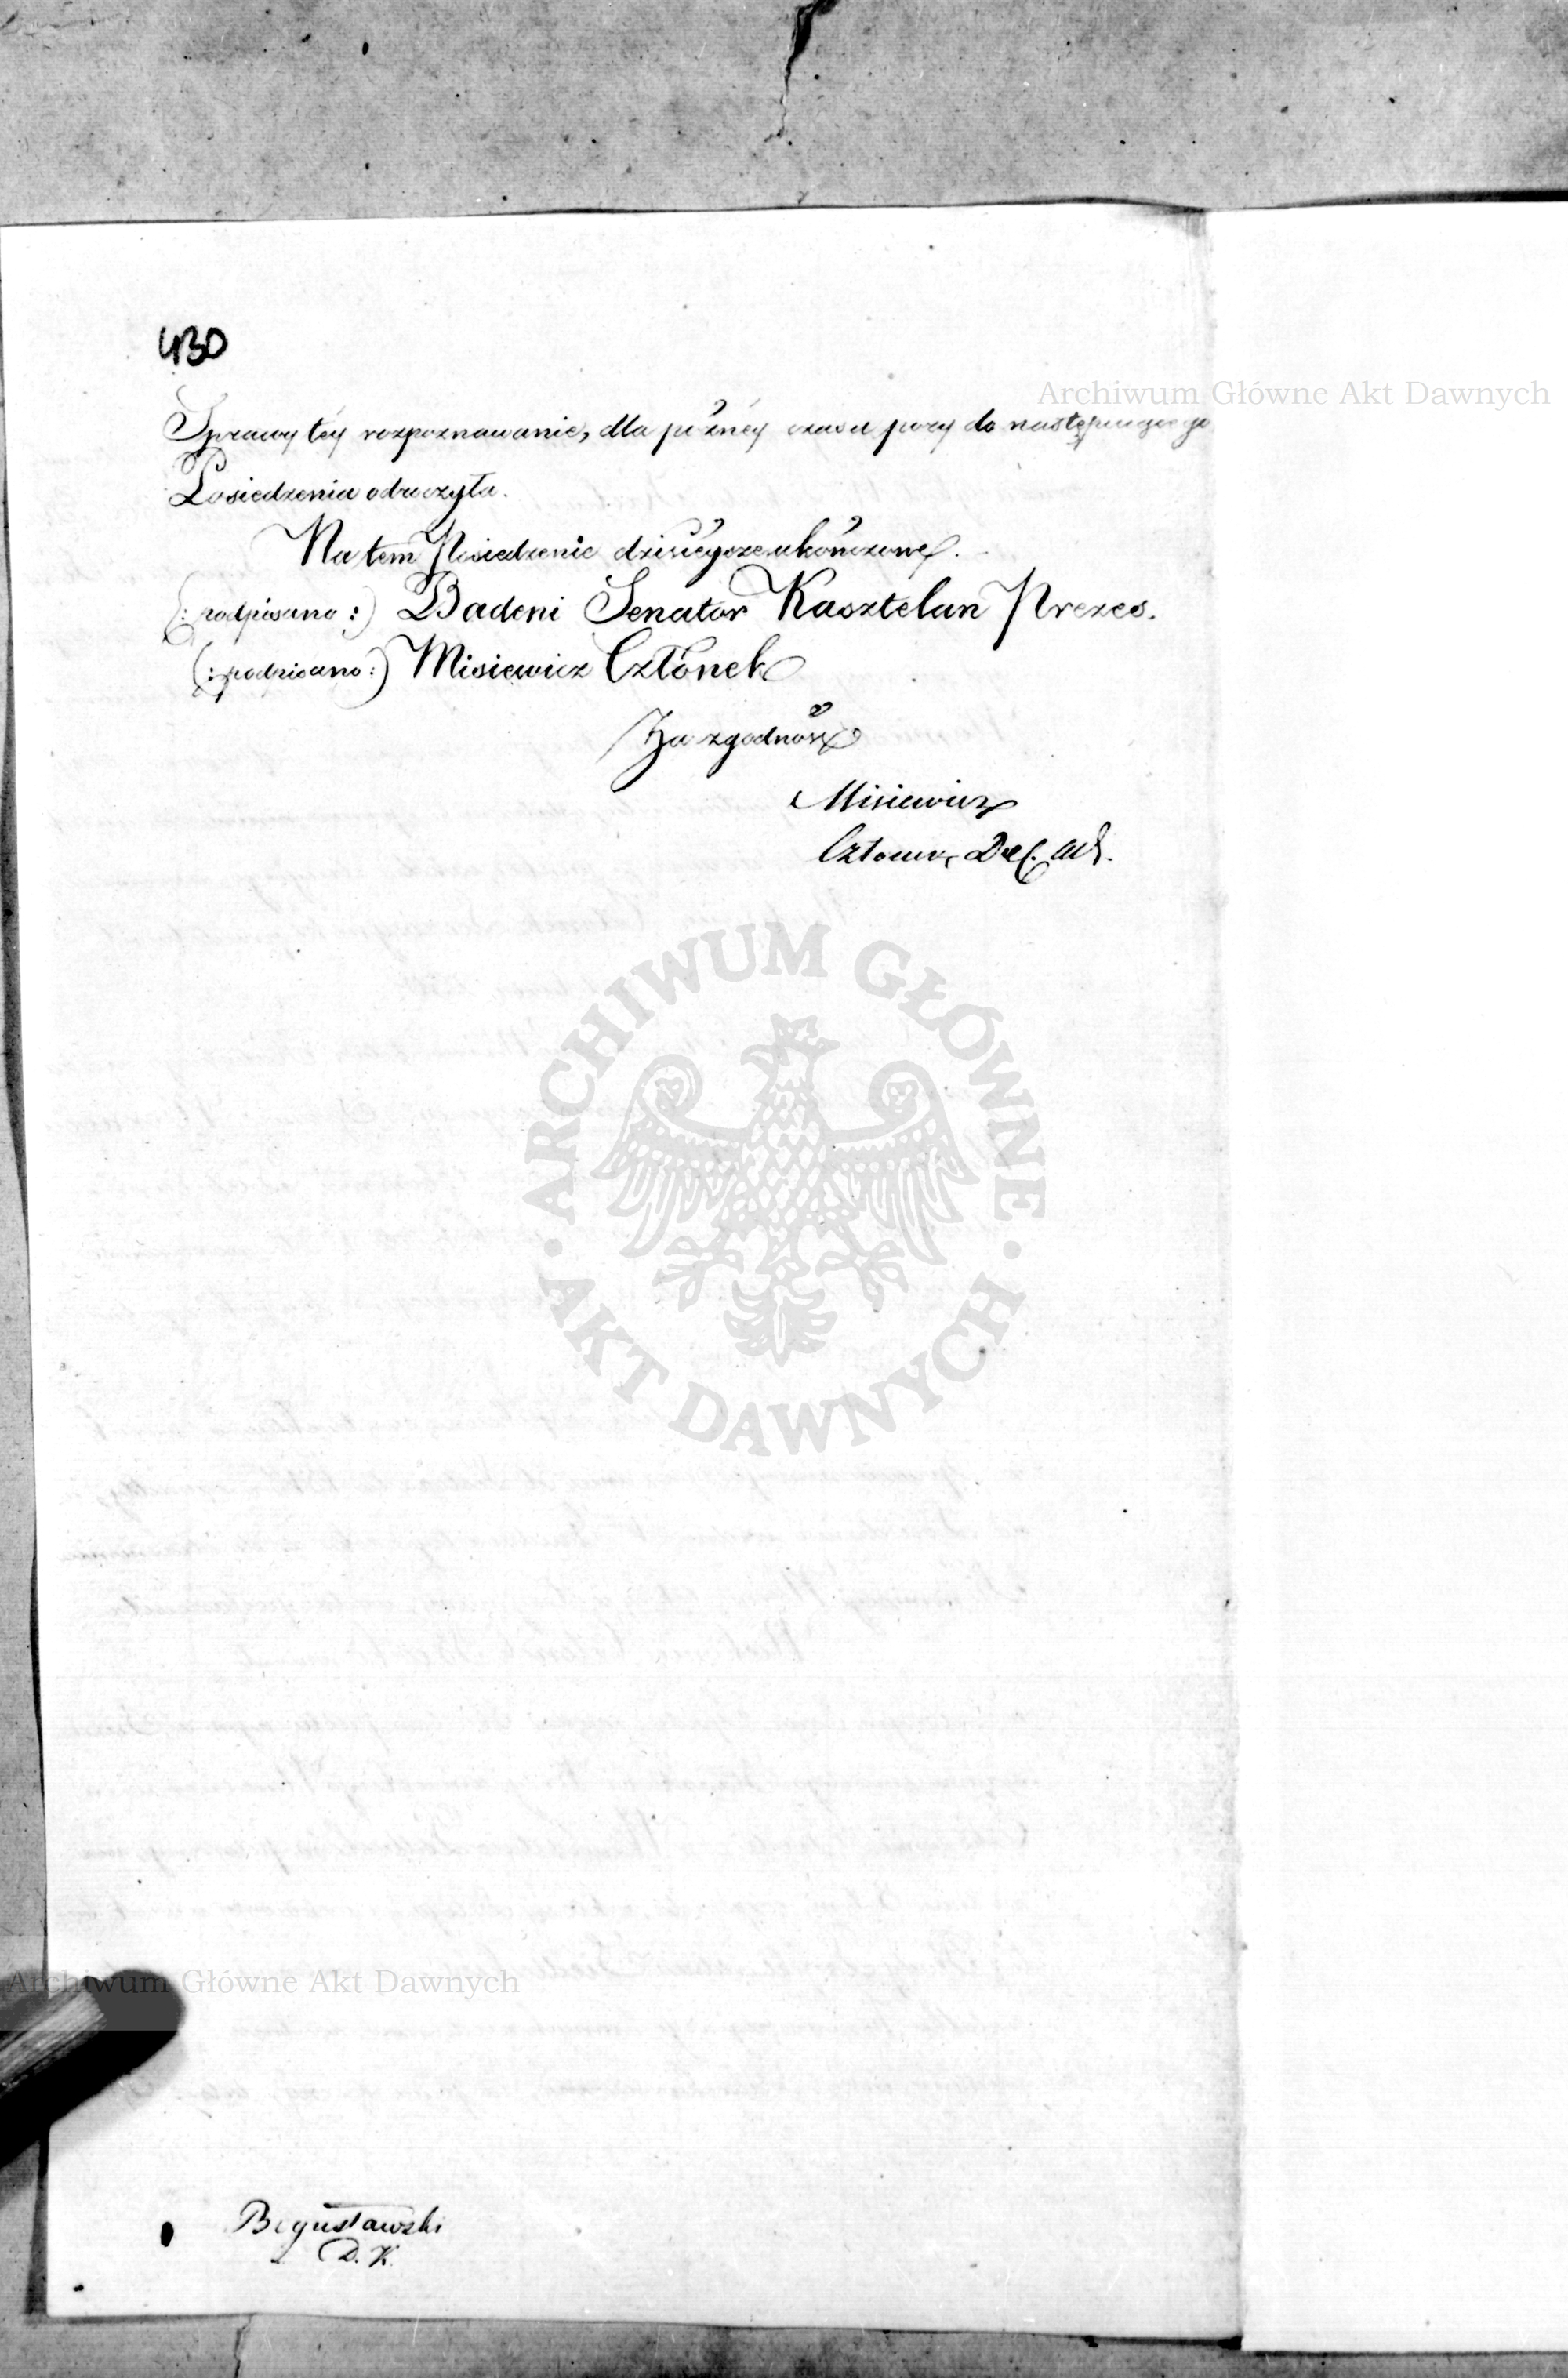 430
Archiwum Główne Akt Dawnych
Sprawy téy rozpoznawanie, dla późnéy czasu pory do następuiącego
Posiedzenia odroczyła.
Na tem Posiedzenie dzisieysze ukończone.
(: podpisano :) Badeni Senator Kasztelan Prezes.
(: podpisano :) Misiewicz Członek
Za zgodność
Misiewicz
Członek Del. Adm.
ARCHIWUM GŁÓWNE
· AKT DAWNYCH ·
Archiwum Główne Akt Dawnych
Bogusławski
D. K.